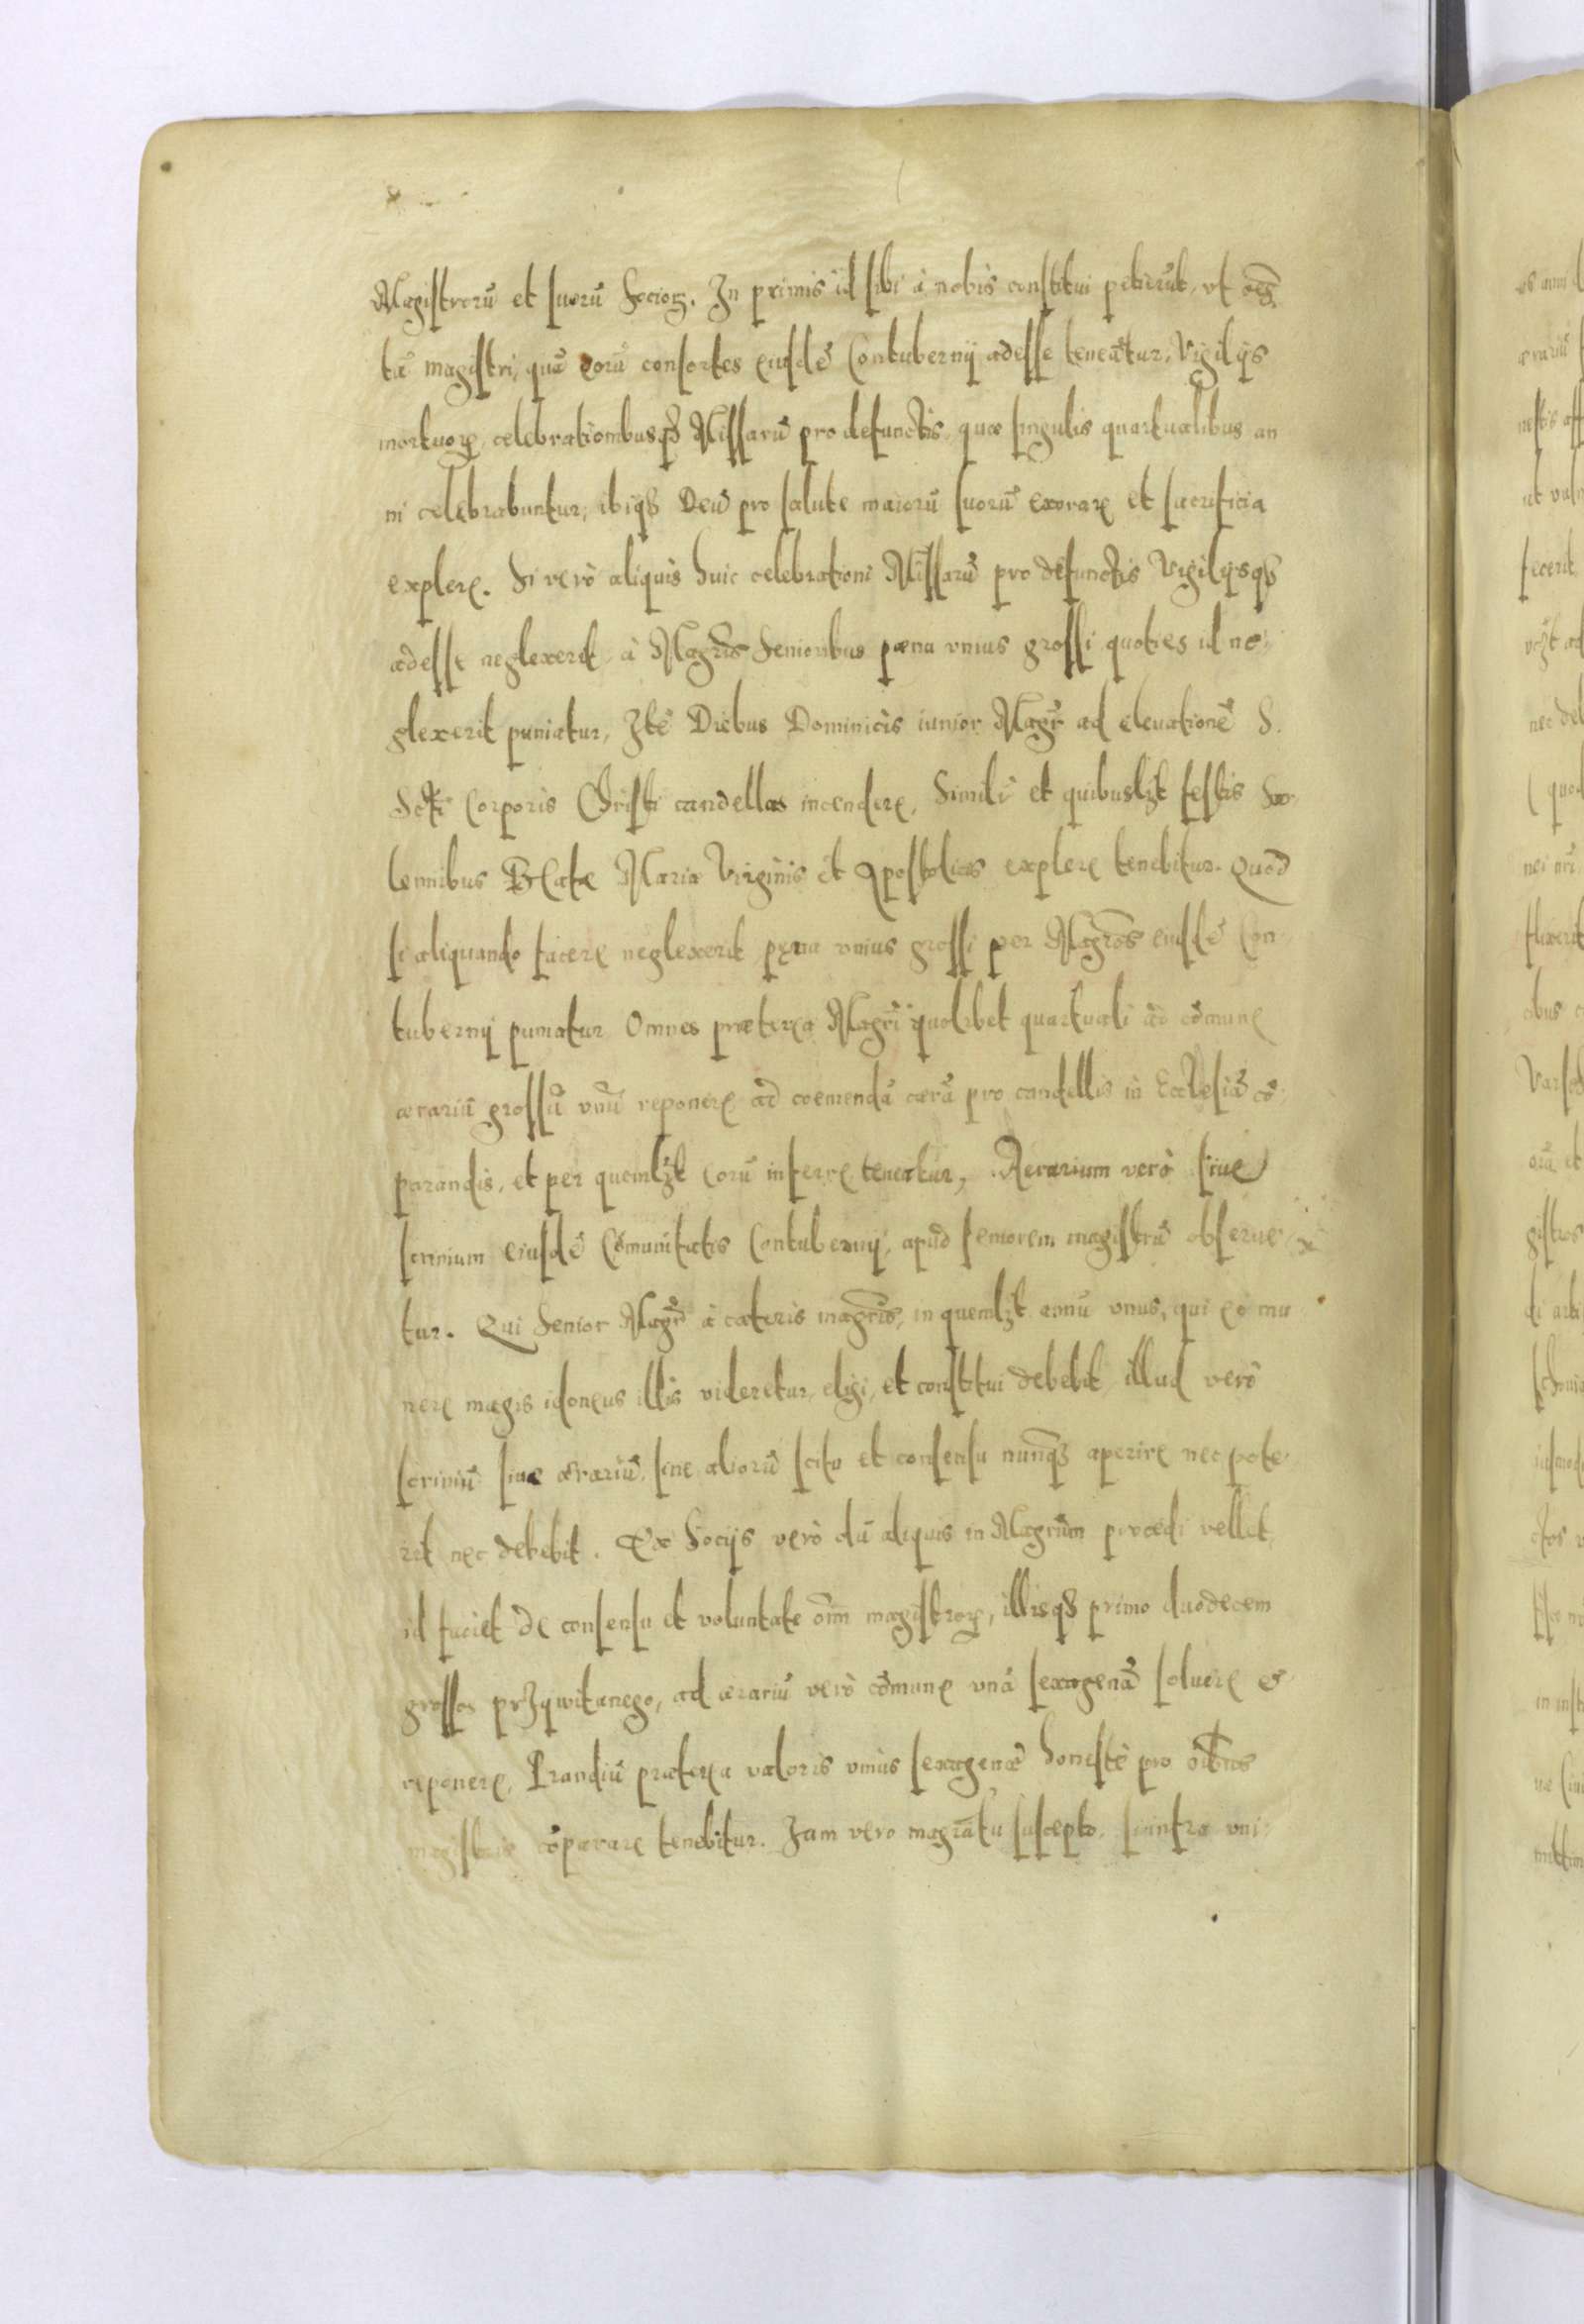 Magistrorũ et suorũ Socioꝝ. In primis id sibi à nobis constitui petierũt, vt oẽs
tã magistri, quã eorũ consortes eiusdẽ Contubernij adesse teneãtur, Vigilijs
mortuoꝝ, celebrationibusqȝ Missarũ pro defunctis, quæ singulis quartualibus an
ni celebrabuntur, ibiqȝ Deũ pro salute maiorũ suorũ exorare et sacrificia
explere. Si verò aliquis huic celebrationi Missarũ pro defunctis Vigilijsqȝ
adesse neglexerit à Magrĩs Senioribus pæna vnius grossi quoties id ne-
glexerit puniatur, Itẽ Diebus Dominicis iunior Magr̃ ad eleuationẽ S.
Scti Corporis Christi candellas incendere, Simili et quibuslȝt festis So-
lennibus Beatæ Mariæ Virginis et Apostolicis explere tenebitur. Quod
si aliquando facere neglexerit pęna vnius grossi per Magrõs eiusdẽ Con
tubernij puniatur Omnes præterea Magrĩ quolibet quartuali ad cõmune
ærariũ grossũ vnũ reponere ad coemendã cærã pro candellis in Ecclesiã cõ-
parandis, et per quemlȝt eorũ inferre teneatur, Aerarium verò siue
scrinium eiusdẽ Cõmunitatis Contubernij, apud seniorem magistrũ obserue
tur. Qui Senior Magr̃ à cæteris magrĩs, in quemlȝt annũ vnus, qui eò mu
nere magis idoneus illis videretur, eligi, et constitui debebit, illud verò
scriniũ siue ærariũ, sine aliorũ scitu et consensu nunqȝ aperire nec pote-
rit nec debebit. Ex Socijs verò dũ aliquis in Magrũm procedi vellet,
id faciet de consensu et voluntate oĩm magistroꝝ, illisqȝ primo duodecem
grossos przywitanego, ad ærariũ verò cõmune vnã sexagenã soluere &
reponere, Prandiũ præterea valoris vnius sexagenæ honestè pro oĩbus
magistris cõparare tenebitur. Iam vero magrãtu suscepto, si intra vni-